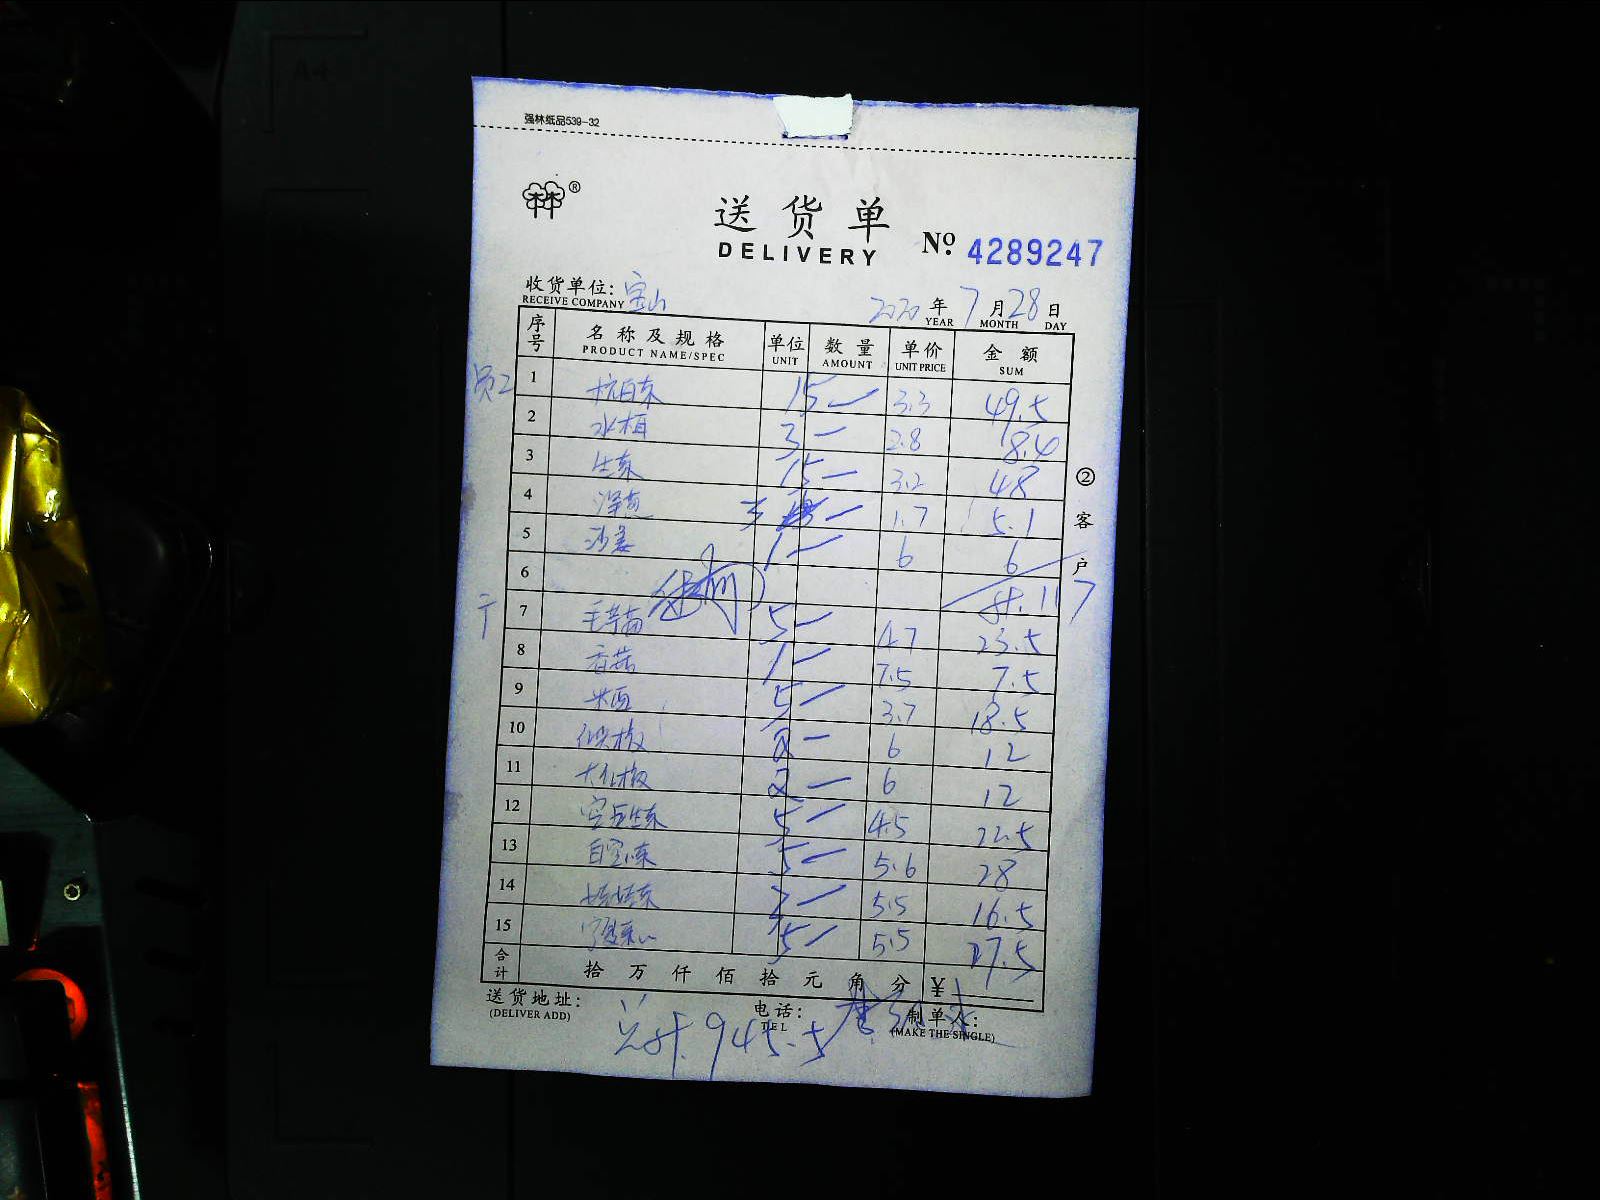 强林纸品539-32
®
送货单
DELIVERY
No. 4289247
收货单位: 宝山
RECEIVE COMPANY
2020 年 7 月 28 日
YEAR MONTH DAY
序号 名称及规格 单位 数量 单价 金额
PRODUCT NAME/SPEC UNIT AMOUNT UNIT PRICE SUM
员工 1 杭白菜 15 3.3 49.5
2 3 2.8 8.4
3 生菜 15 3.2 48
4 1.7 5.1
5 沙姜 1 6 6
6 117
7 5 4.7 23.5
8 香菇 1 7.5 7.5
9 5 3.7 18.5
10 2 6 12
11 2 6 12
12 5 4.5 22.5
13 5 5.6 28
14 3 5.5 16.5
15 5 5.5 27.5
② 客户
合计 拾 万 仟 佰 拾 元 角 分 ¥
送货地址: 电话: 制单人:
(DELIVER ADD) TEL (MAKE THE SINGLE)
945.5